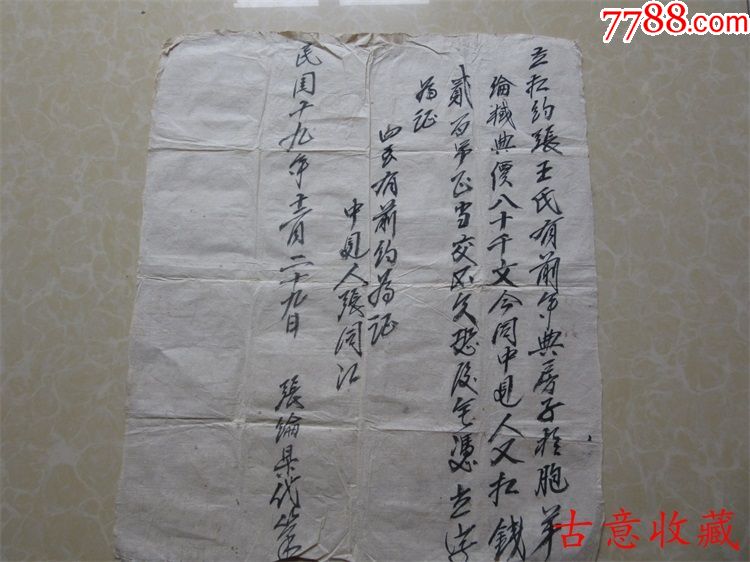 7788.com
立扣约張王氏有前年典房子於胞弟
綸職典價八十千文今同中見人又扣錢
貳百吊正當交不欠恐後無憑立字
為証
四至有前約為証
中見人張同江
民囯十九年十二月二十九日 張綸昇代筆
古意收藏